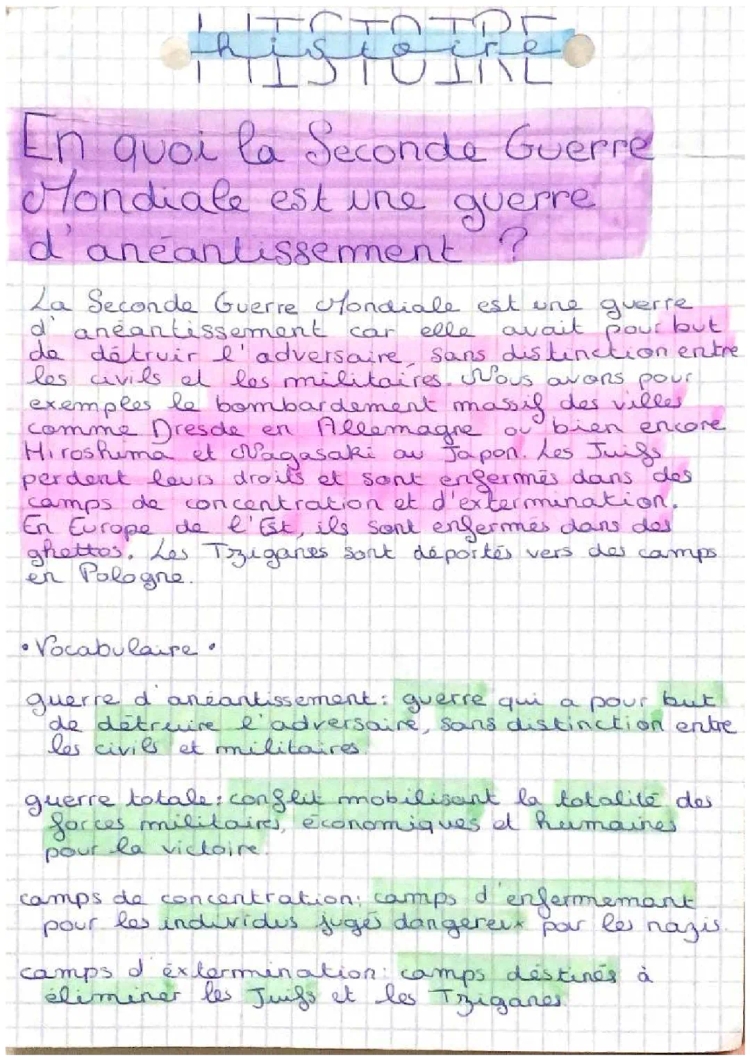 HISTOIRE
histoire
En quoi la Seconde Guerre
Mondiale est une guerre
d'anéantissement ?
La Seconde Guerre Mondiale est une guerre
d'anéantissement car elle avait pour but
de détruir l'adversaire, sans distinction entre
les civils et les militaires. Nous avons pour
exemples le bombardement massif des villes
comme Dresde en Allemagne ou bien encore
Hiroshima et Nagasaki au Japon. Les Juifs
perdent leurs droits et sont enfermés dans des
camps de concentration et d'extermination.
En Europe de l'Est, ils sont enfermés dans des
ghettos. Les Tziganes sont déportés vers des camps
en Pologne.
• Vocabulaire •
guerre d'anéantissement : guerre qui a pour but
de détruire l'adversaire, sans distinction entre
les civils et militaires.
guerre totale : conflit mobilisant la totalité des
forces militaires, économiques et humaines
pour la victoire.
camps de concentration : camps d'enfermemant
pour les individus jugés dangereux par les nazis.
camps d'éxtermination : camps déstinés à
éliminer les Juifs et les Tziganes